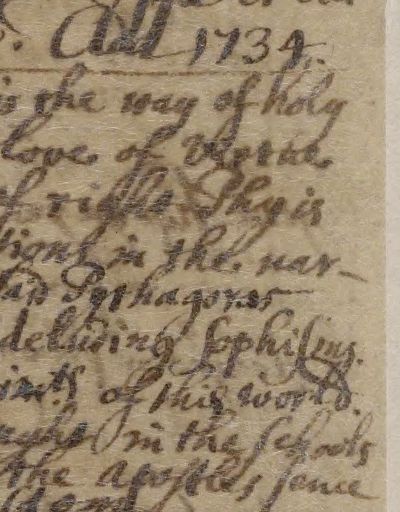 Add 1734.
is the way of holy
love of Vertue
of right Phy is
tions in the nar-
said Pythagoras
deluding Sophisms.
of this world.
in the Schools
the apostles sence